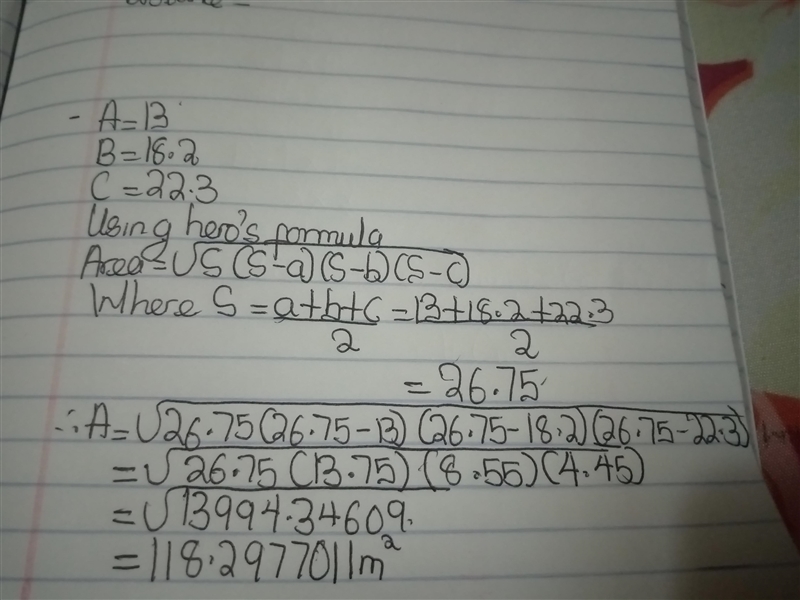 - A=13
B=18.2
C=22.3
Using hero's formula
Area=√S(S-a)(S-b)(S-c)
Where S = a+b+c/2 = 13+18.2+22.3/2
= 26.75
∴A=√26.75(26.75-13)(26.75-18.2)(26.75-22.3)
=√26.75(13.75)(8.55)(4.45)
=√13994.34609.
=118.2977011m²